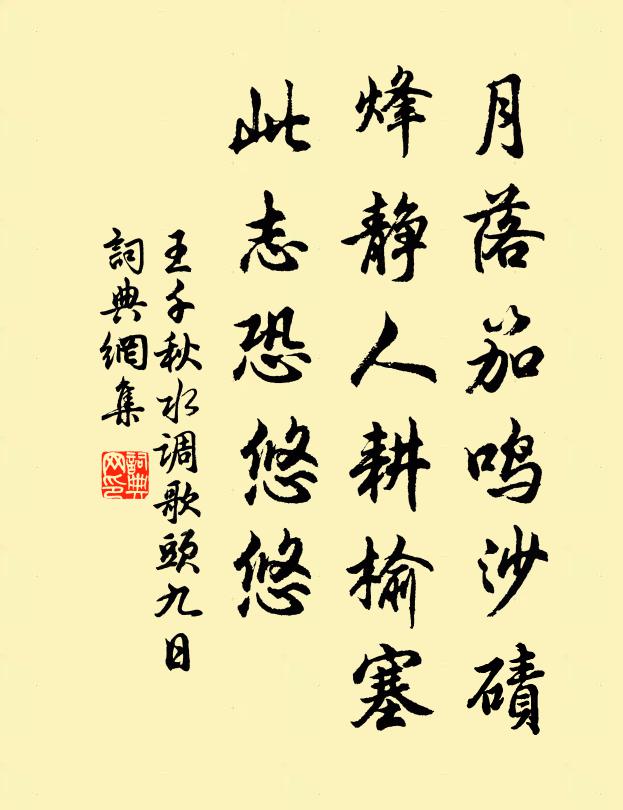 月落笳鸣沙碛
烽静人耕榆塞
此志恐悠悠
王千秋水调歌頭九日
詞典網集
詞典网印